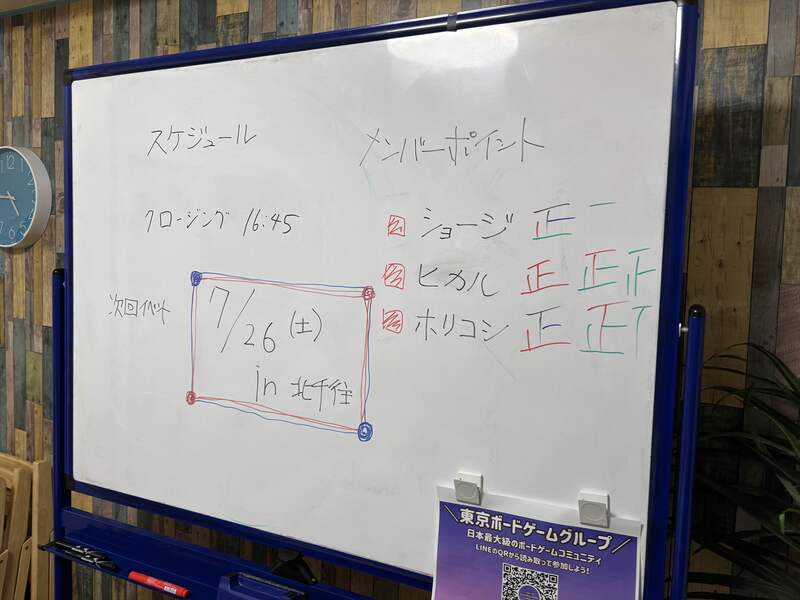 スケジュール
クロージング 16:45
次回イベント
7/26 (土)
in 北千住
メンバーポイント
ショージ 正一
ヒカル 正 正
ホリコシ 正 正
＼東京ボードゲームグループ／
日本最大級のボードゲームコミュニティ
LINEのQRから読み取って参加しよう！
12